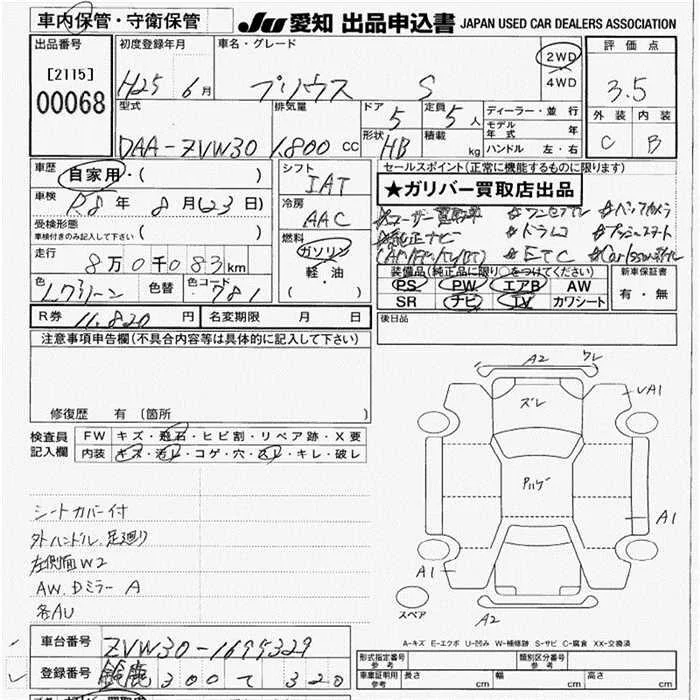 車内保管・守衛保管 JU 愛知 出品申込書 JAPAN USED CAR DEALERS ASSOCIATION
出品番号 [2115] 00068
初度登録年月 H25 6月
車名・グレード プリウス S
2WD
4WD
評価点 3.5
外装 C 内装 B
型式 DAA-ZVW30
排気量 1.800 cc
ドア 5
定員 5人
形状 HB
積載 kg
ディーラー・並行
モデル年式 年
ハンドル 左・右
車歴 自家用・( )
車検 R8年 8月(23日)
受検形態
車検付きのみ記入して下さい ( )
走行 8万0千083km
色 Lグリーン 色替 色コード 781
シフト IAT
冷房 AAC
燃料 ガソリン
軽・油
( ・ )
R券 11.820円 名変期限 月 日
セールスポイント(正常に機能するものに限ります)
★ガリバー買取店出品
☆ユーザー買取車 ☆ワンセグTV ☆バックカメラ
☆純正ナビ ☆ドラレコ ☆プッシュスタート
☆ETC
装備品(純正品に限り○をつけてください)
PS PW エアB AW
SR ナビ TV カワシート
新車保証書
有・無
後日品
注意事項申告欄(不具合内容等は具体的に記入して下さい)
修復歴 有(箇所 )
検査員記入欄
FW キズ・飛石・ヒビ割・リペア跡・X要
内装 キズ・汚レ・コゲ・穴・スレ・キレ・破レ
シートカバー付
外ハンドル.足廻り
左側面W2
AW.Dミラー A
各AU
A2 ワレ
ズレ
UA1
A1
A1
スペア
A2
A-キズ E-エクボ U-凹み W-補修跡 S-サビ C-腐食 XX-交換済
車台番号 ZVW30-1699329
登録番号 鈴鹿 300 て 320
形式指定番号 参考
類別区分番号 参考
車庫証明用 参考 長さ cm 幅 cm 高さ cm